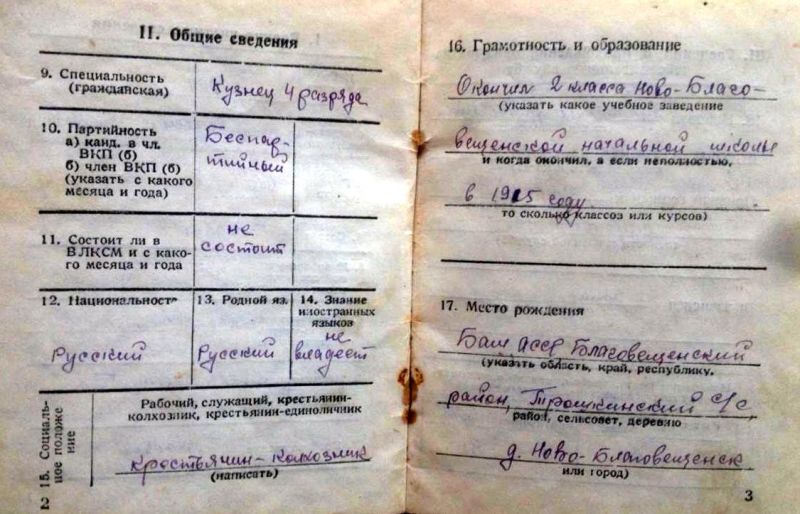 11. Общие сведения
9. Специальность
(гражданская)
Кузнец 4 разряда
10. Партийность
а) канд. в чл.
ВКП (б)
б) член ВКП (б)
(указать с какого
месяца и года)
Беспар-
тийный
11. Состоит ли в
ВЛКСМ и с како-
го месяца и года
не
состоит
12. Национальность
Русский
13. Родной яз.
Русский
14. Знание
иностранных
языков
не
владеет
15. Социаль-
ное положе
ние
Рабочий, служащий, крестьянин-
колхозник, крестьянин-единоличник
Крестьянин-Колхозник
(написать)
2
16. Грамотность и образование
Окончил 2 класса Ново-Благо-
(указать какое учебное заведение
вещенской начальной школы
и когда окончил, а если неполностью,
в 1915 году
то сколько классов или курсов)
17. Место рождения
Баш АССР Благовещенский
(указать область, край, республику,
район, Трошкинский с/с,
район, сельсовет, деревню
д. Ново-Благовещенск
или город)
3